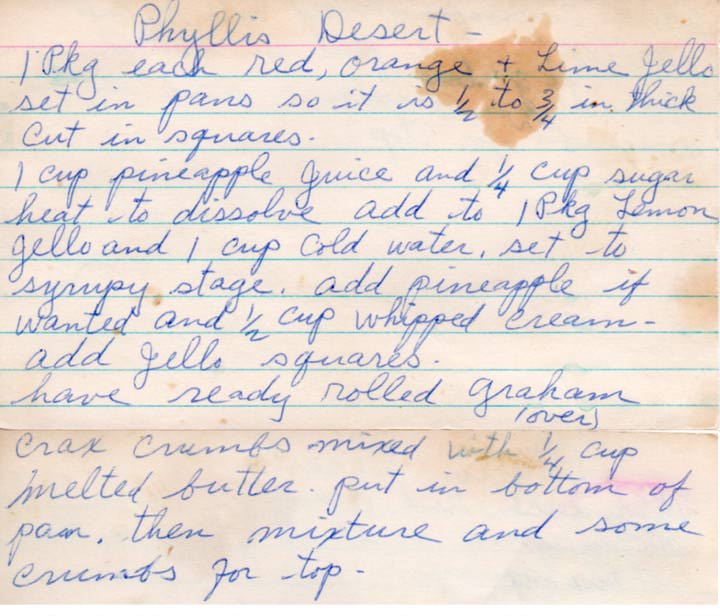 Phyllis Desert -
1 Pkg each red, orange + Lime Jello
set in pans so it is 1/2 to 3/4 in. thick
cut in squares.
1 cup pineapple juice and 1/4 cup sugar
heat to dissolve add to 1 Pkg Lemon
Jello and 1 cup cold water. set to
syrupy stage. add pineapple if
wanted and 1/2 cup whipped cream -
add Jello squares.
have ready rolled Graham
(over)
crax crumbs mixed with 1/4 cup
melted butter. put in bottom of
pan. then mixture and some
crumbs for top -